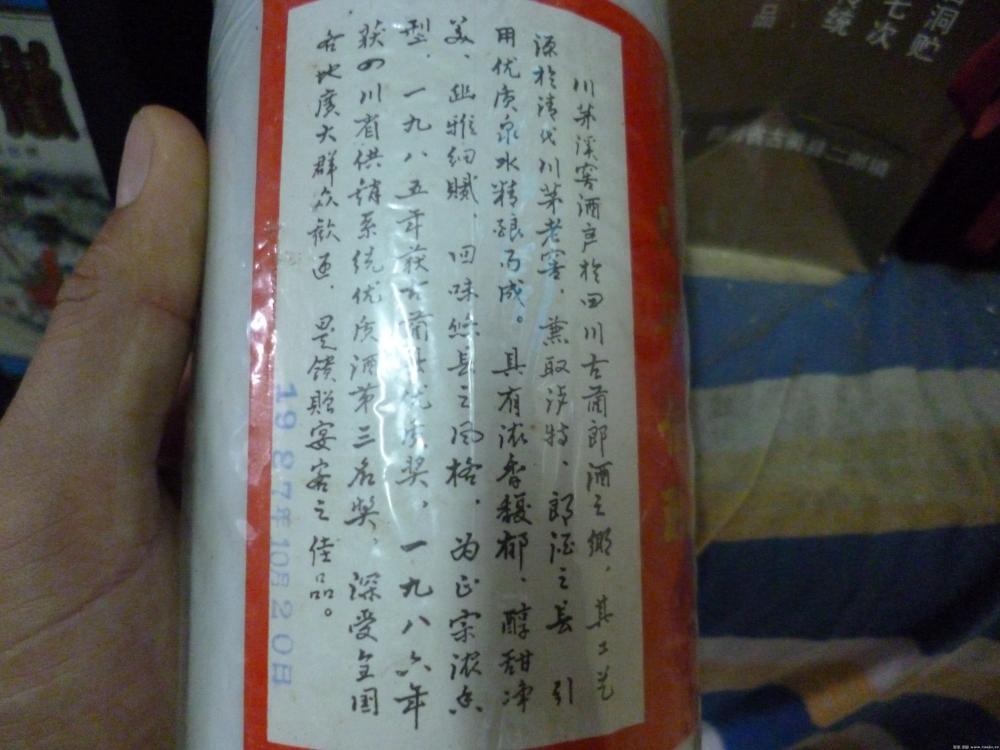 川茅溪窖酒产於四川古蔺郎酒之乡，其工艺
源於清代川茅老窖，兼取泸特、郎酒之长，引
用优质泉水精酿而成。具有浓香馥郁，醇甜净
美，幽雅细腻，回味悠长之风格，为正宗浓香
型，一九八五年获古蔺县优质奖，一九八六年
获四川省供销系统优质酒第三名奖，深受全国
各地广大群众欢迎，是馈赠宴客之佳品。
1987年10月20日
洞贮
七次
传统
品